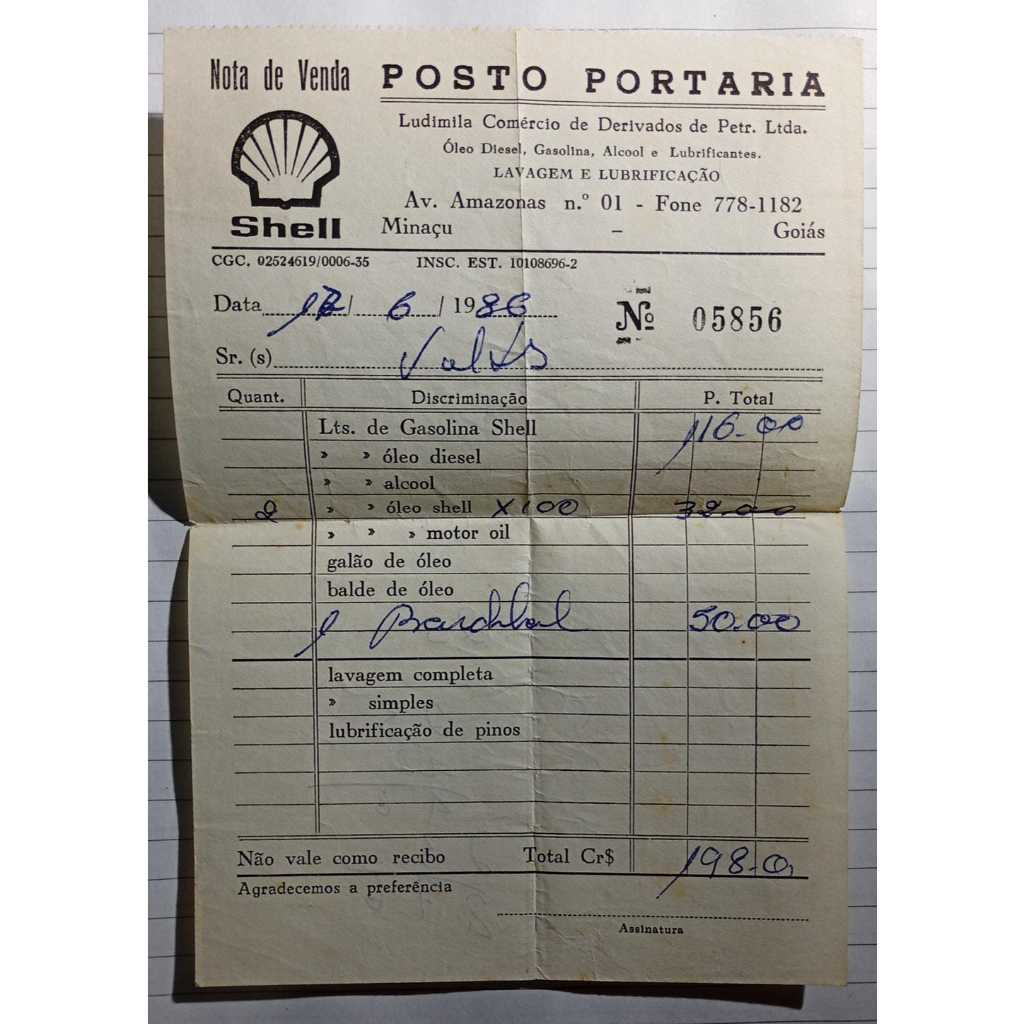 Nota de Venda
POSTO PORTARIA
Ludimila Comércio de Derivados de Petr. Ltda.
Óleo Diesel, Gasolina, Alcool e Lubrificantes.
LAVAGEM E LUBRIFICAÇÃO
Av. Amazonas n.º 01 - Fone 778-1182
Minaçu - Goiás
Shell
CGC. 02524619/0006-35 INSC. EST. 10108696-2
Data / 6 / 1986
Nº 05856
Sr. (s)
Quant. Discriminação P. Total
Lts. de Gasolina Shell 116-00
» » óleo diesel
» » alcool
2 » » óleo shell X100 32-00
» » » motor oil
galão de óleo
balde de óleo
1 50-00
lavagem completa
» simples
lubrificação de pinos
Não vale como recibo Total Cr$ 198-0
Agradecemos a preferência
Assinatura